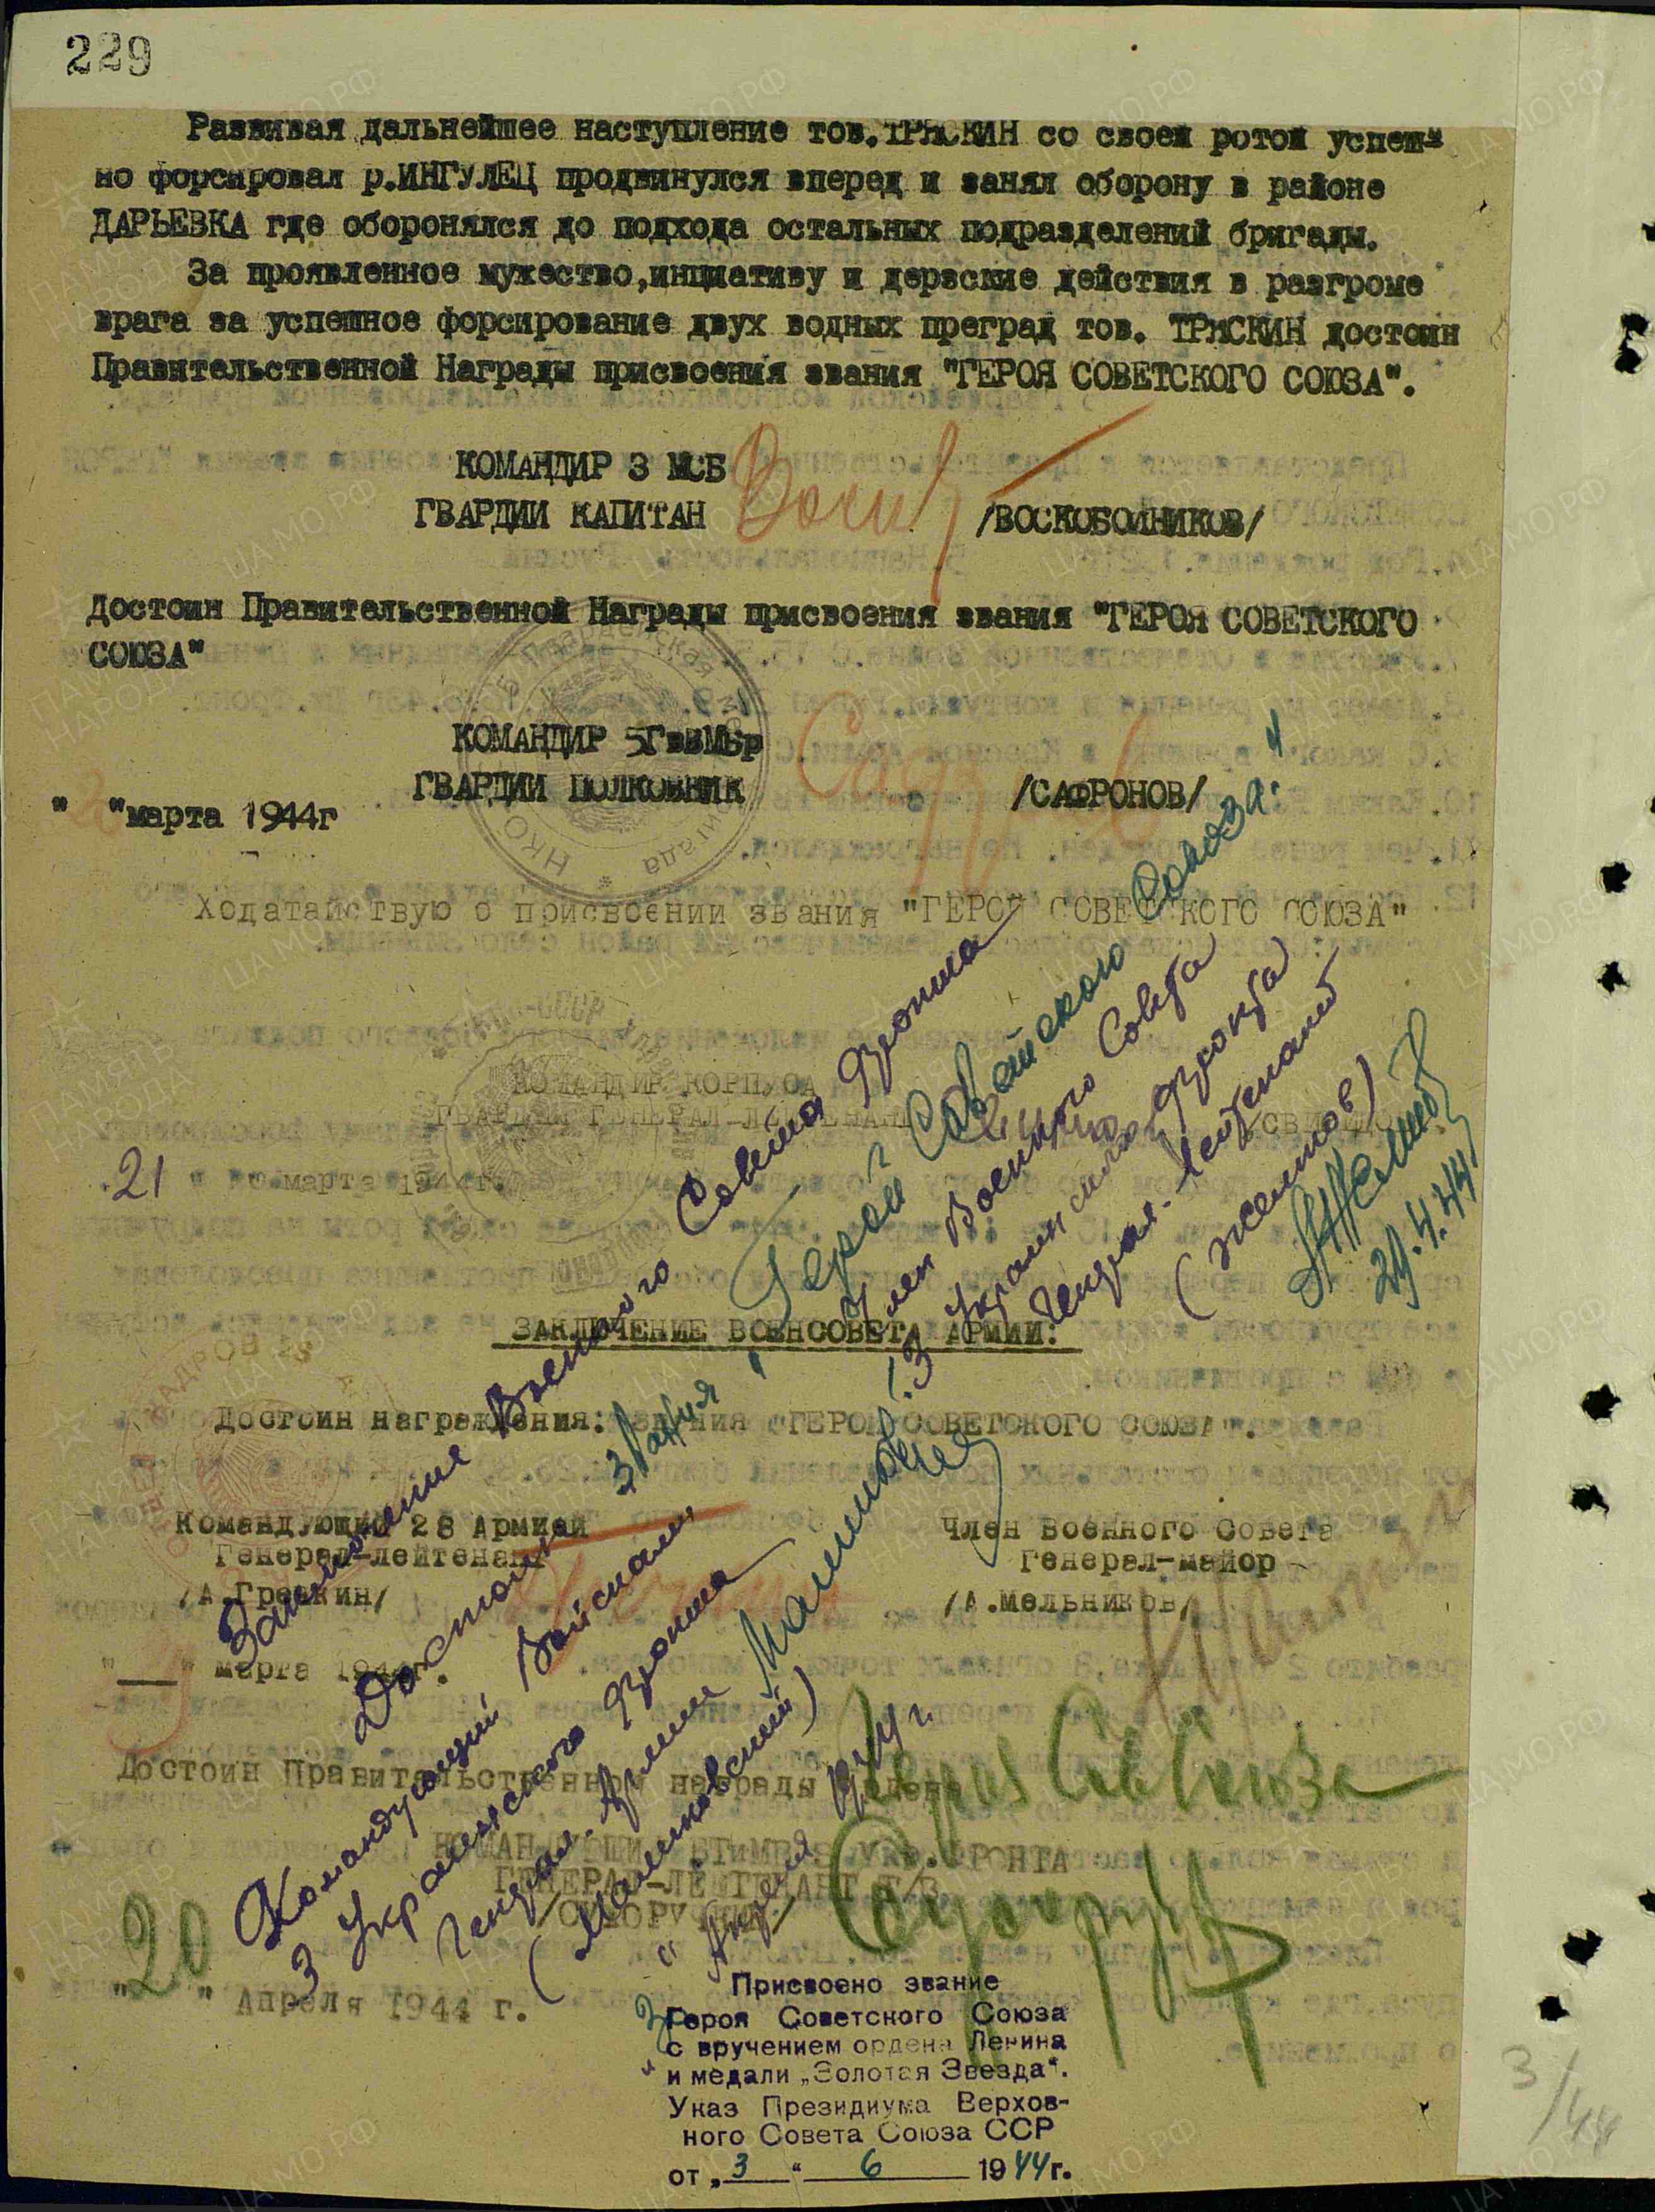 229
Развивая дальнейшее наступление тов.ТРЯСКИН со своей ротой успеш-
но форсировал р.ИНГУЛЕЦ продвинулся вперед и занял оборону в районе
ДАРЬЕВКА где оборонялся до подхода остальных подразделений бригады.
За проявленное мужество,инциативу и дерзские действия в разгроме
врага за успешное форсирование двух водных преград тов. ТРЯСКИН достоин
Правительственной Награды присвоения звания "ГЕРОЯ СОВЕТСКОГО СОЮЗА".
КОМАНДИР 3 МСБ
ГВАРДИИ КАПИТАН /ВОСКОБОЙНИКОВ/
Достоин Правительственной Награды присвоения звания "ГЕРОЯ СОВЕТСКОГО
СОЮЗА"
КОМАНДИР 5ГвЗМБр
ГВАРДИИ ПОЛКОВНИК /САФРОНОВ/
" "марта 1944г
Ходатайствую о присвоении звания "ГЕРОЙ СОВЕТСКОГО СОЮЗА"
КОМАНДИР КОРПУСА
ГВАРДИИ ГЕНЕРАЛ-ЛЕЙТЕНАНТ
21 марта 1944г.
ЗАКЛЮЧЕНИЕ ВОЕНСОВЕТА АРМИИ:
Достоин награждения: звания "ГЕРОЙ СОВЕТСКОГО СОЮЗА".
Командующий 28 Армией
Генерал-лейтенант
/А.Гречкин/
Член Военного Совета
Генерал-майор
/А.Мельников/
"___" марта 1944г.
Заключение Военного Совета Фронта
Достоин звания "Герой Советского Союза."
Командующий Войсками
3 Украинского Фронта
Генерал-Армии
(Малиновский)
" Апреля 1944 г.
Член Военного Совета
3 Украинского Фронта
Генерал-Лейтенант
(Желтов)
29.4.44
Достоин Правительственной награды ордена
Героя Сов Союза
КОМАНДУЮЩИЙ БТиМВ 3 УКР. ФРОНТА
ГЕНЕРАЛ-ЛЕЙТЕНАНТ Т/В
"20" Апреля 1944 г.
Присвоено звание
Героя Советского Союза
с вручением ордена Ленина
и медали „Золотая Звезда".
Указ Президиума Верхов-
ного Совета Союза ССР
от „3" 6 1944г.
3/44